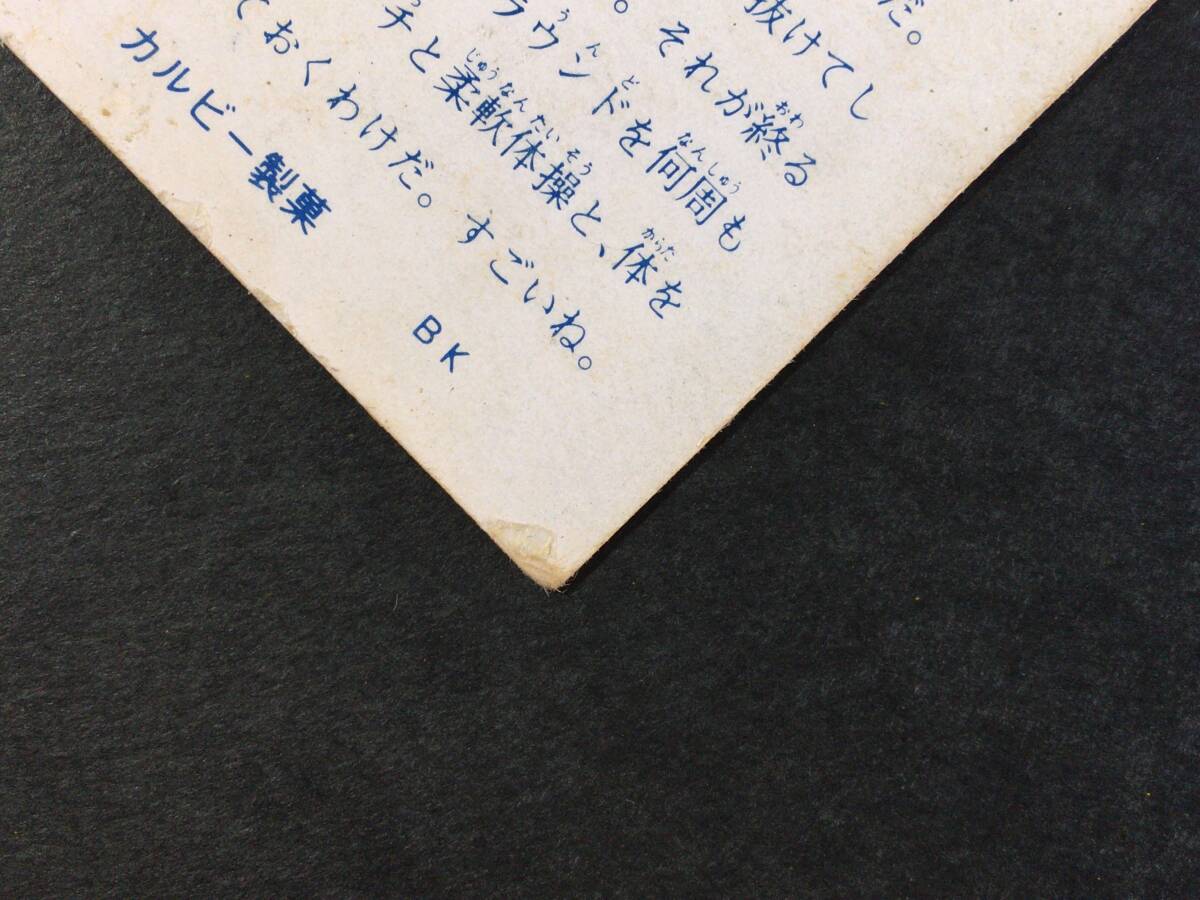 だ。
抜けてし
。それが終る
ラウンドを何周も
チと柔軟体操と、体を
ておくわけだ。すごいね。
カルビー製菓 BK